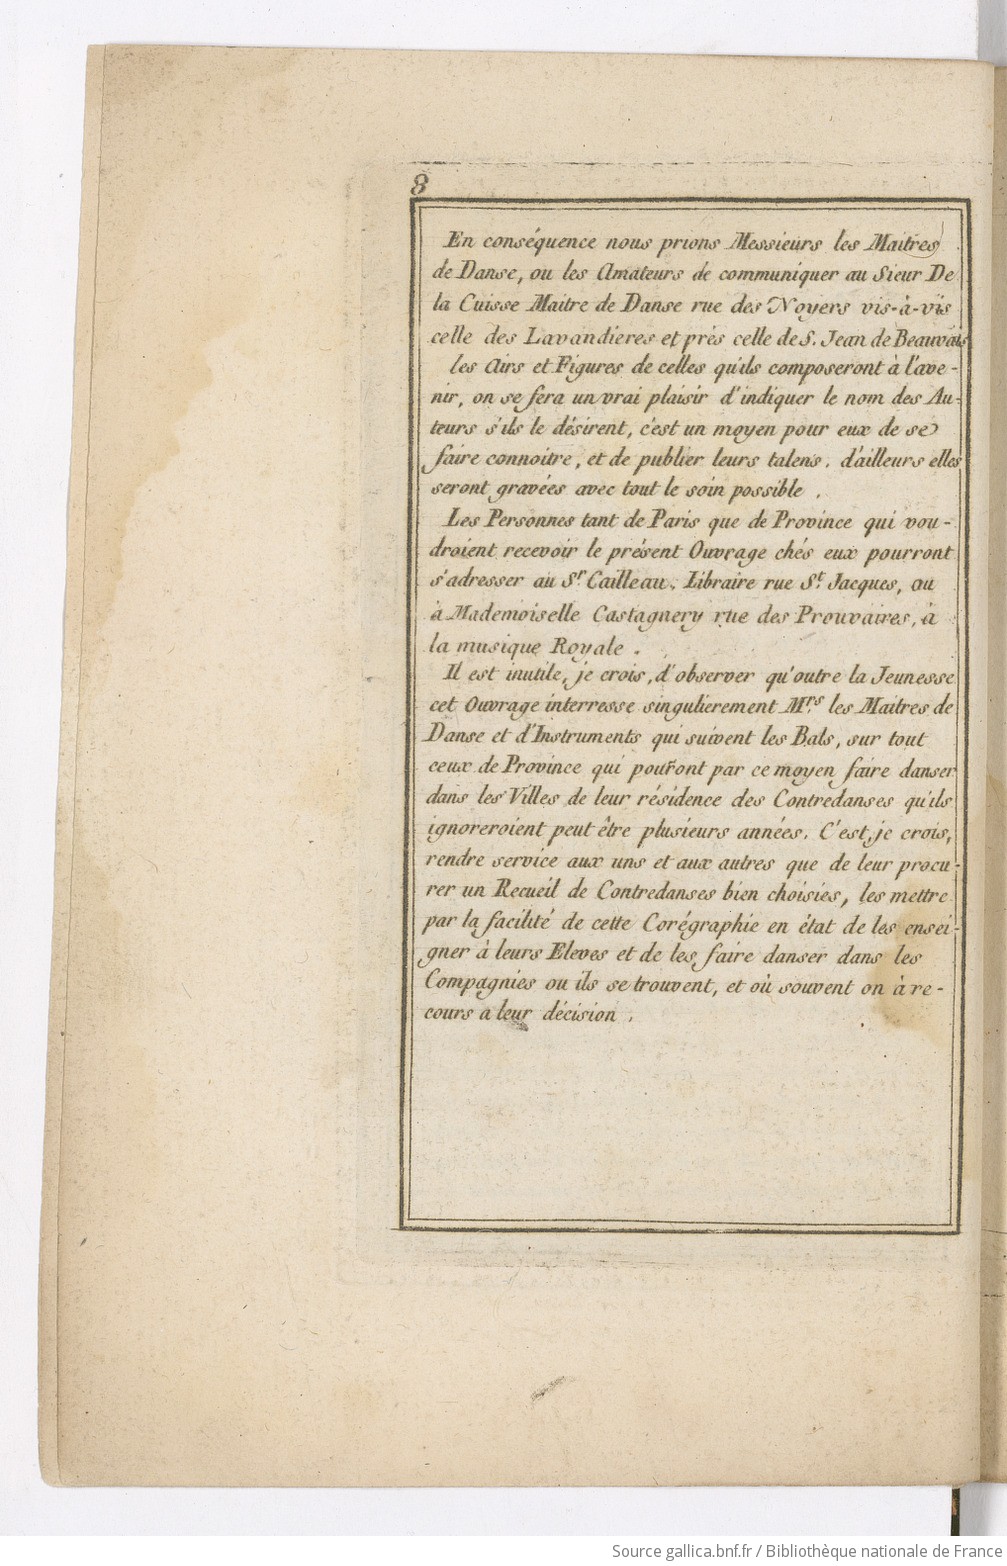 8
En conséquence nous prions Messieurs les Maitres
de Danse, ou les Amateurs de communiquer au Sieur De
la Cuisse Maitre de Danse rue des Noyers vis-à-vis
celle des Lavandieres et prés celle de S. Jean de Beauvais
les Airs et Figures de celles qu'ils composeront à l'ave-
nir, on se fera un vrai plaisir d'indiquer le nom des Au-
teurs s'ils le désirent, c'est un moyen pour eux de se
faire connoitre, et de publier leurs talens. d'ailleurs elles
seront gravées avec tout le soin possible.
Les Personnes tant de Paris que de Province qui vou-
droient recevoir le présent Ouvrage chés eux pourront
s'adresser au Sr. Cailleau. Libraire rue St. Jacques, ou
à Mademoiselle Castagnery rue des Prouvaires, à
la musique Royale.
Il est inutile, je crois, d'observer qu'outre la Jeunesse
cet Ouvrage interresse singulierement Mrs. les Maitres de
Danse et d'Instruments qui suivent les Bals, sur tout
ceux de Province qui pouront par ce moyen faire danser
dans les Villes de leur résidence des Contredanses qu'ils
ignoreroient peut être plusieurs années. C'est, je crois,
rendre service aux uns et aux autres que de leur procu-
rer un Recueil de Contredanses bien choisies, les mettre
par la facilité de cette Corégraphie en état de les ensei-
gner à leurs Eleves et de les faire danser dans les
Compagnies ou ils se trouvent, et où souvent on à re-
cours a leur décision.
Source gallica.bnf.fr / Bibliothèque nationale de France